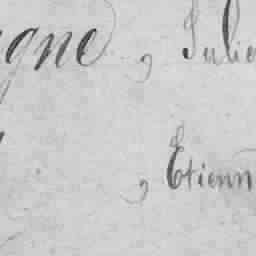 gne, Julie
, Etienn